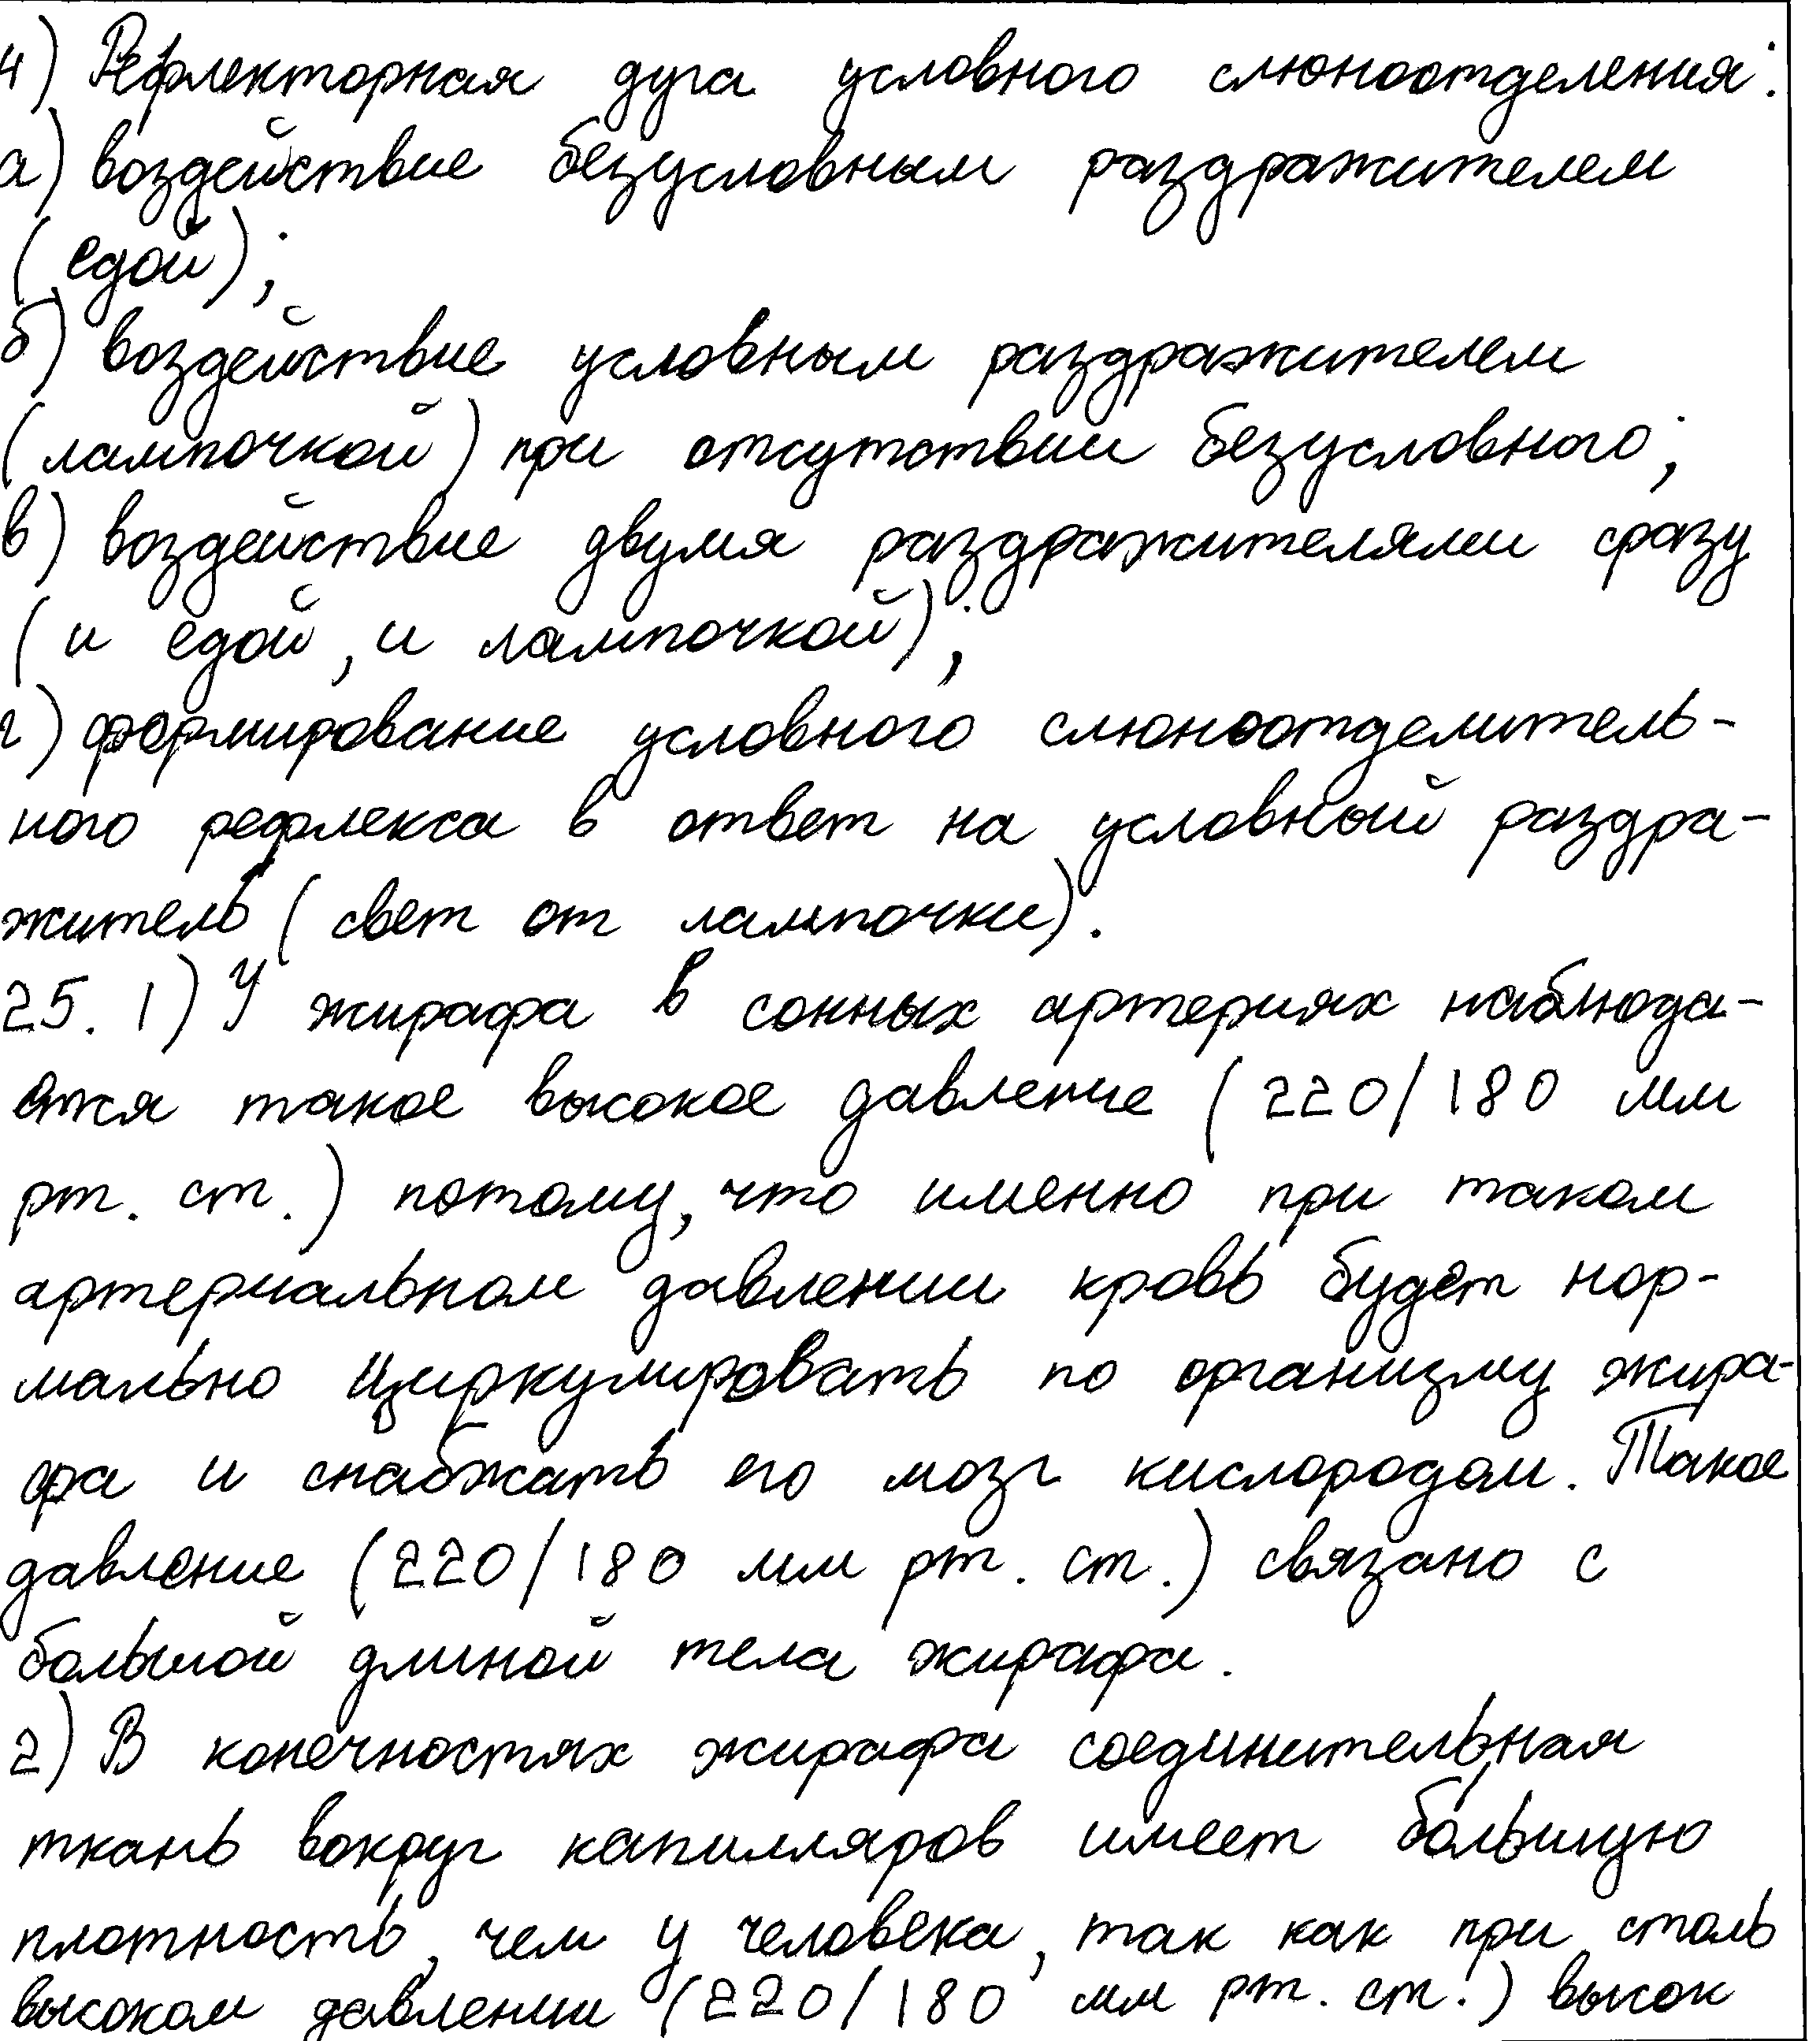 4) Рефлекторная дуга условного слюноотделения:
а) воздействие безусловным раздражителем
(едой);
б) воздействие условным раздражителем
(лампочкой) при отсутствии безусловного;
в) воздействие двумя раздражителями сразу
(и едой, и лампочкой);
г) формирование условного слюноотделитель-
ного рефлекса в ответ на условный раздра-
житель (свет от лампочки).
25. 1) У жирафа в сонных артериях наблюда-
ется такое высокое давление (220/180 мм
рт. ст.) потому, что именно при таком
артериальном давлении кровь будет нор-
мально циркулировать по организму жира-
фа и снабжать его мозг кислородом. Такое
давление (220/180 мм рт. ст.) связано с
большой длиной тела жирафа.
2) В конечностях жирафа соединительная
ткань вокруг капилляров имеет большую
плотность, чем у человека, так как при столь
высоком давлении (220/180 мм рт. ст.) высок